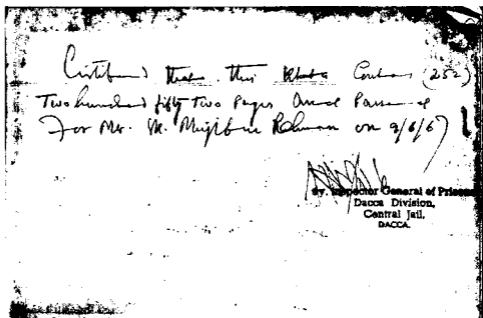 Certified that this Khata Contains (252)
Two hundred fifty Two pages and Passed
For Mr. Sk. Mujibur Rahman on 9/6/67
Dy. Inspector General of Prisons
Dacca Division,
Central Jail,
DACCA.